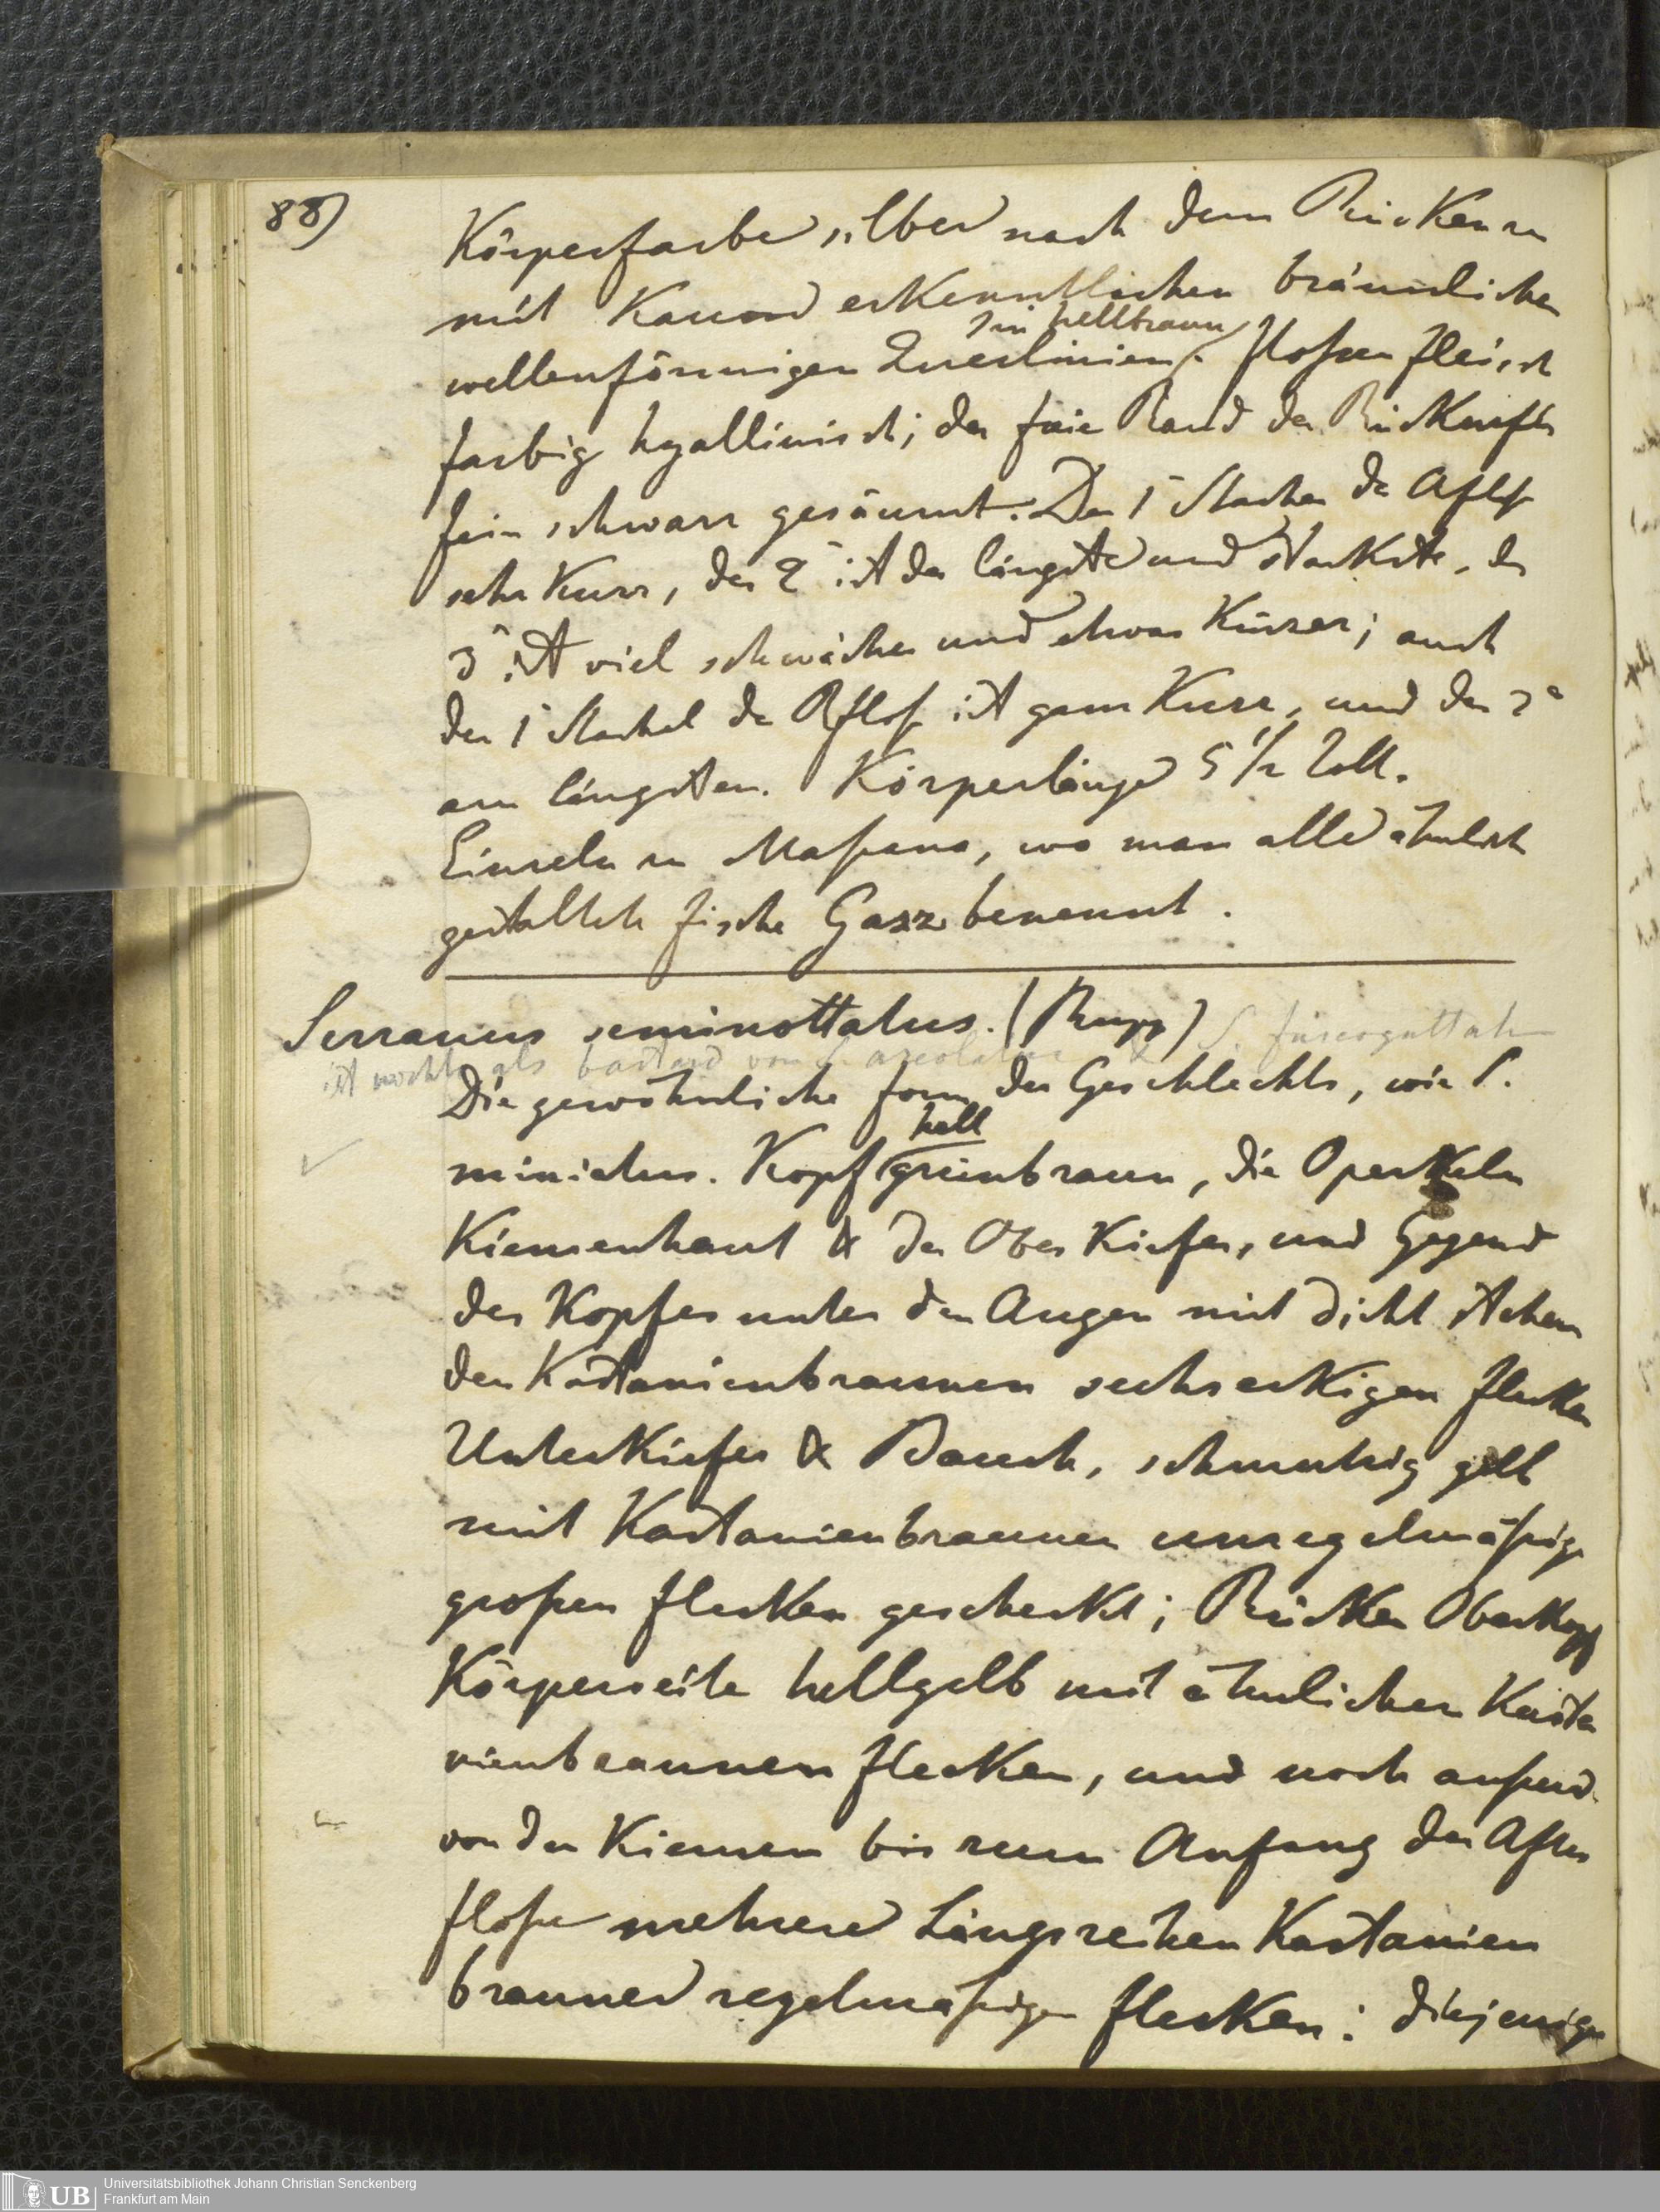 88)
Körperfarbe silber nach dem Rücken zu
mit Kaum erkenntlichen bräunlichen
in hellbraun
wellenförmigen Querlinien. Floßen fleisch
farbig hyallinisch; der freie Rand der Rückenfl
fein schwarz gesäumt. Der 1e Stachel der Aflß
sehr Kurz, der 2e ist der längste und stärkste, der
3e ist viel schwächer und etwas Kürzer; auch
der 1e Stachel der Rfloß ist ganz Kurz, und der 3e
am längsten. Körperlänge 5 1/2 Zoll.
Einzeln zu Maßaua, wo man alle ähnlich
gestaltete Fische Gazz benennt.
Serranus seminottatus. (Rupp) S. fuscoguttatus
ist wohl als bastard von S. areolatus &
Die gewöhnliche Form des Geschlechts, wie S.
hell
miniatus. Kopf grünbraun, die Operkeln
Kiemenhaut & der Ober Kiefer, und Gegend
des Kopfes unter den Augen mit dicht stehen
den Kastanienbraunen sechseckigen Flecken
Unterkiefer & Bauch, schmutzig gelb
mit Kastanienbraunen unregelmäßig
großen Flecken gescheckt; Rücken Oberkopf
Körperseite hellgelb mit ähnlichen Kasta
nienbraunen Flecken, und noch außerd.
von den Kiemen bis zum Anfang der After
floße mehrere Längsreihen Kastanien
brauner regelmäßiger Flecken: diejenigen
UB
Universitätsbibliothek Johann Christian Senckenberg
Frankfurt am Main